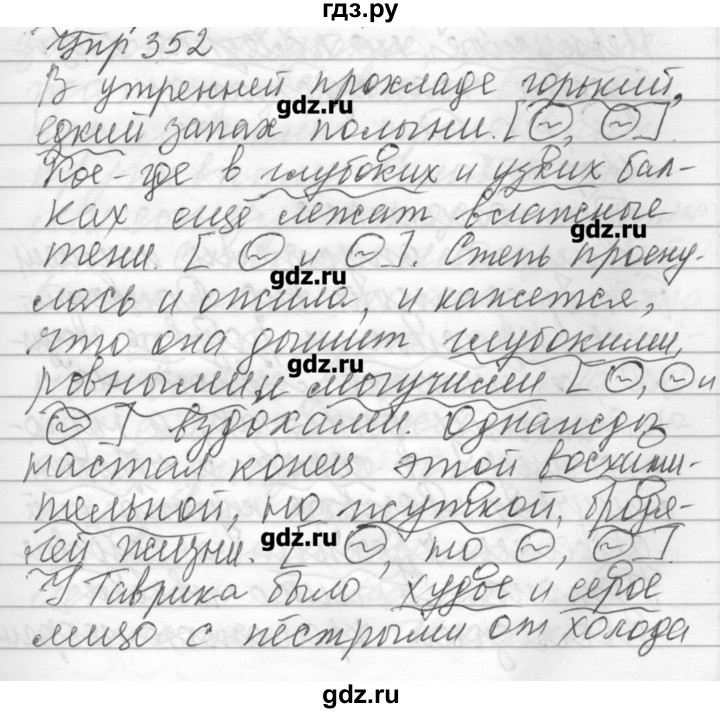 гдз.ру
Упр 352
В утренней прохладе горький,
едкий запах полыни. [~, ~].
Кое-где в глубоких и узких бал-
ках ещё лежат влажные
тени. [~ и ~]. Степь просну-
лась и ожила, и кажется,
что она дышит глубокими,
ровными и могучими [~, ~ и
~] вздохами. Однажды
настал конец этой восхити-
тельной, но жуткой, бродя-
чей жизни. [~, но ~, ~]
У Гаврика было худое и серое
лицо с пёстрыми от холода
gdz.ru
gdz.ru
gdz.ru
gdz.ru
gdz.ru
gdz.ru